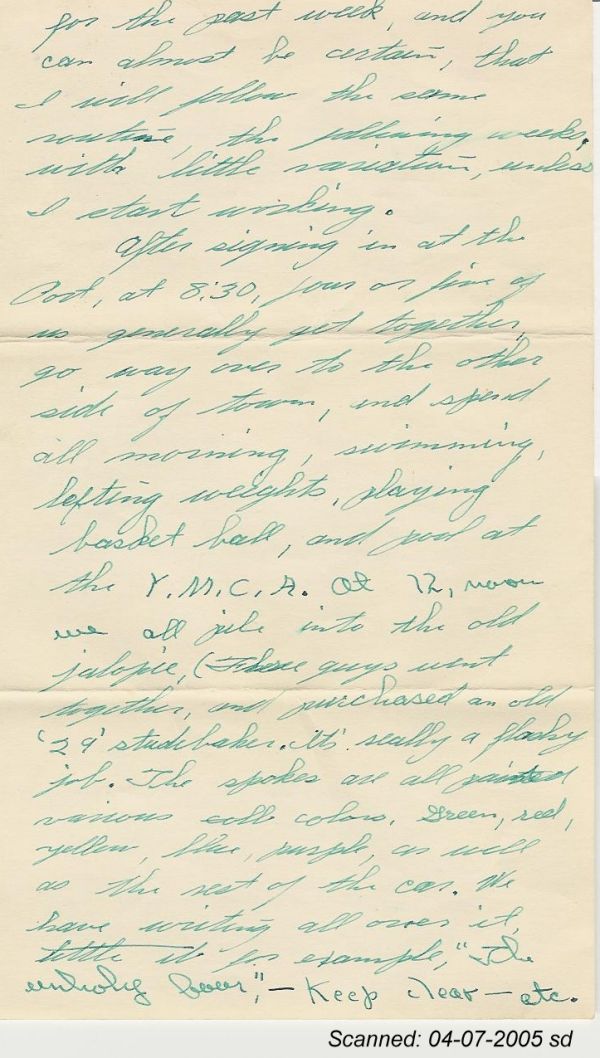 for the past week, and you
can almost be certain, that
I will follow the same
routine, the following weeks,
with little variation, unless
I start working.
After signing in at the
Post, at 8:30, four or five of
us generally get together,
go way over to the other
side of town, and spend
all morning, swimming,
lifting weights, playing
basket ball, and pool at
the Y.M.C.A. At 12, noon
we all pile into the old
jalopie, (Three guys went
together, and purchased an old
'29' studebaker. It's really a flashy
job. The spokes are all painted
various colors. Green, red,
yellow, blue, purple, as well
as the rest of the car. We
have writing all over it,
for example, "The
unholy four", — Keep clear — etc.
Scanned: 04-07-2005 sd